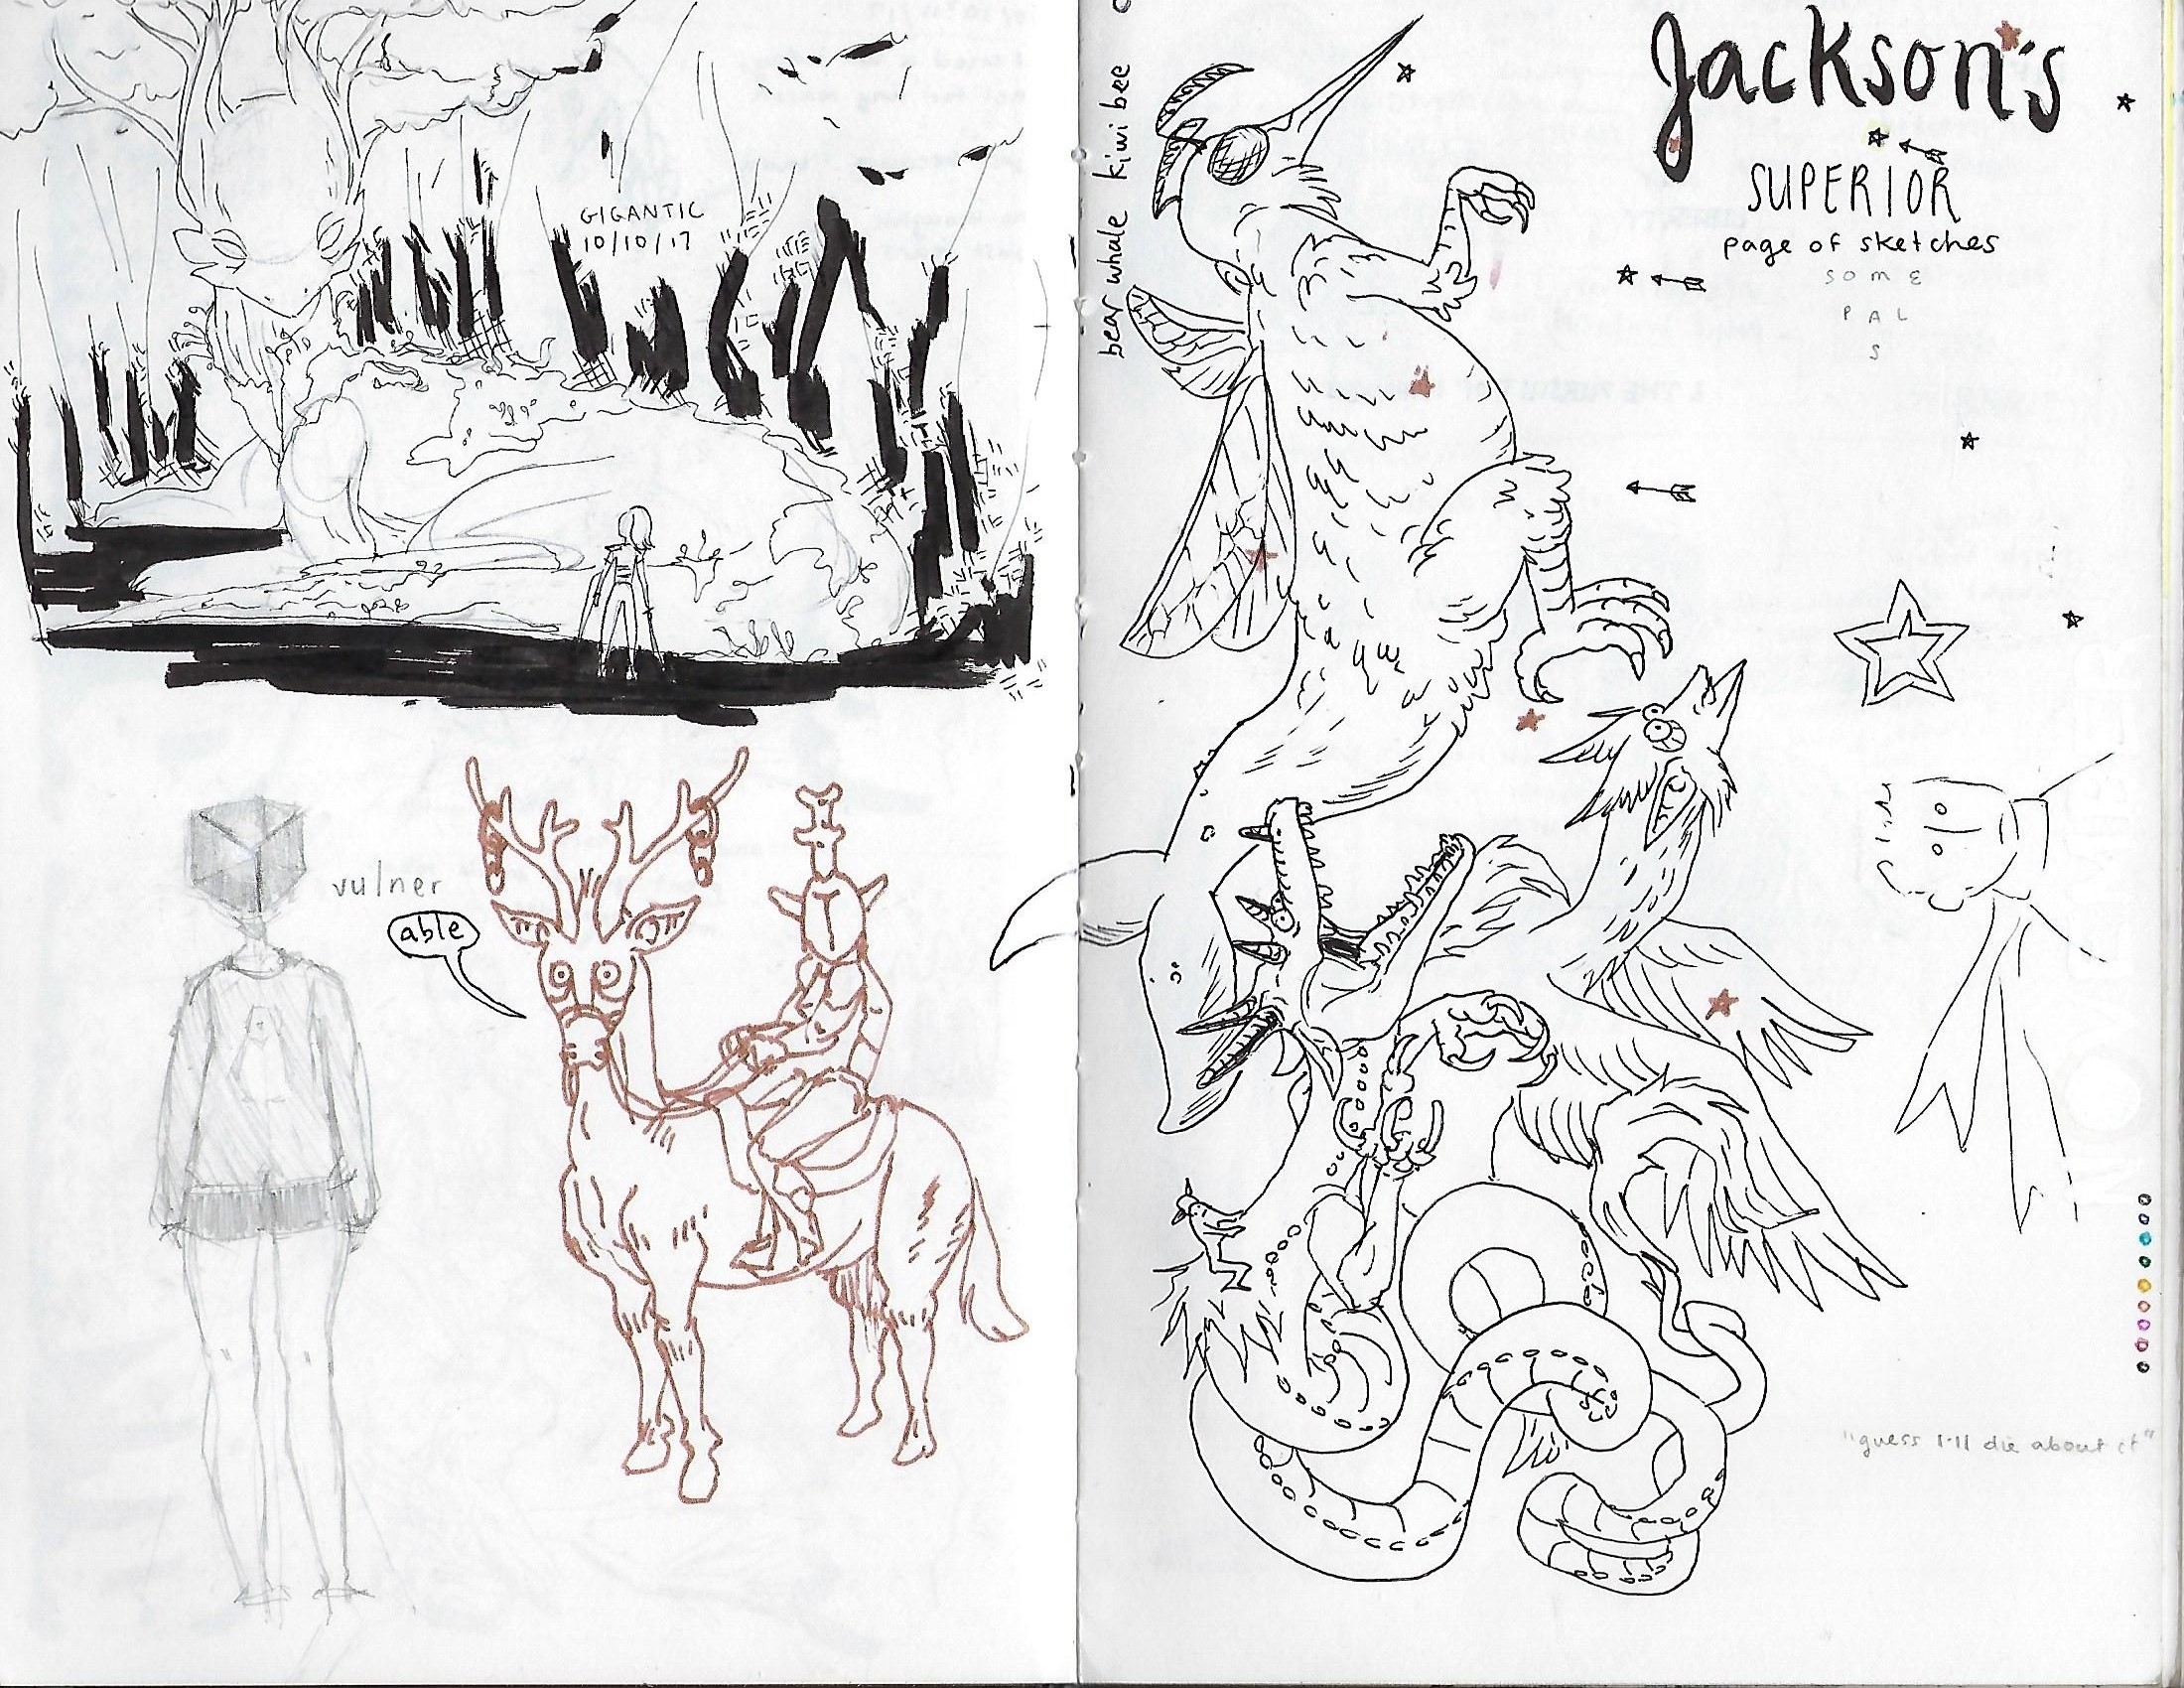 GIGANTIC
10/10/17
vulner
able
bear whale kiwi bee
Jackson's
SUPERIOR
page of sketches
SOME
PAL
S
"guess I'll die about it"